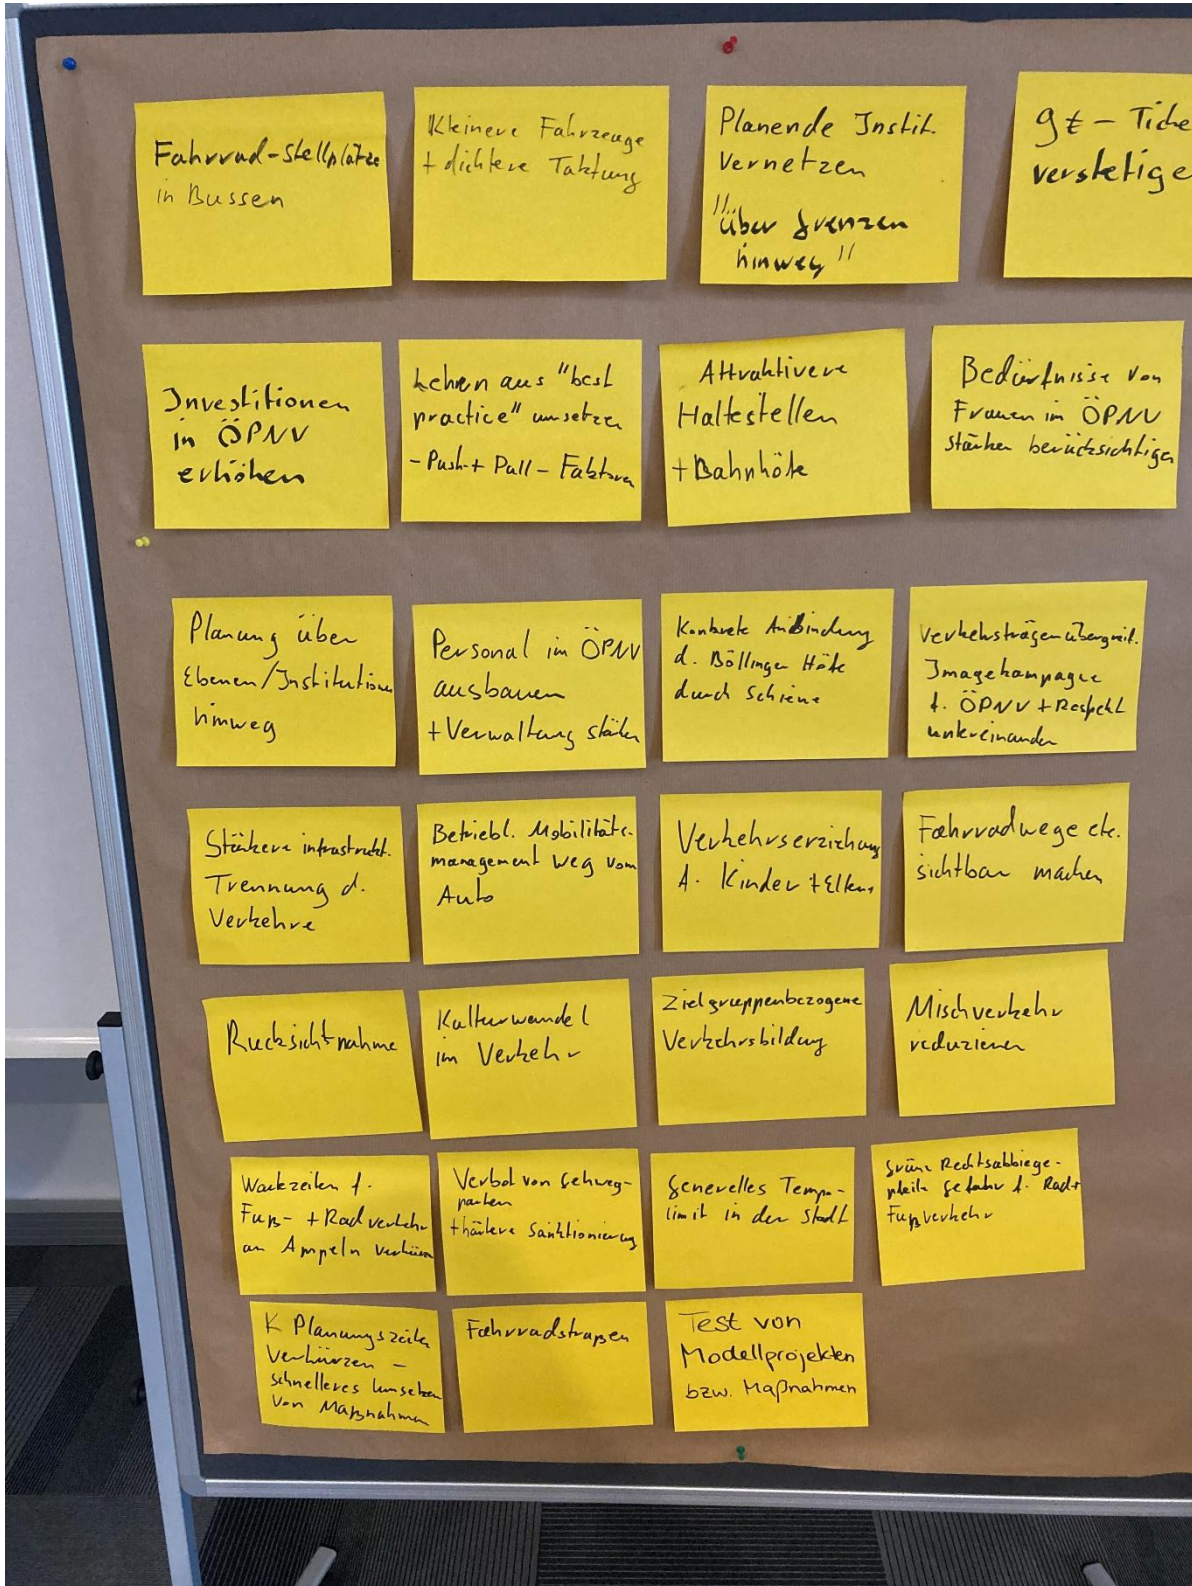 Fahrrad-Stellplätze
in Bussen
Kleinere Fahrzeuge
+ dichtere Taktung
Planende Instit.
vernetzen
"über Grenzen
hinweg"
9€ - Ticke
verstetige
Investitionen
in ÖPNV
erhöhen
Lehren aus "best
practice" umsetzen
- Push + Pull - Faktoren
Attraktivere
Haltestellen
+ Bahnhöfe
Bedürfnisse von
Frauen im ÖPNV
stärker berücksichtigen
Planung über
Ebenen/Institutionen
hinweg
Personal im ÖPNV
ausbauen
+ Verwaltung stärken
Konkrete Anbindung
d. Böllinger Höfe
durch Schiene
Verkehrsträgerübergreif.
Imagekampagne
f. ÖPNV + Respekt
untereinander
Stärkere infrastrukt.
Trennung d.
Verkehre
Betriebl. Mobilitäts-
management weg vom
Auto
Verkehrserziehung
f. Kinder + Eltern
Fahrradwege etc.
sichtbar machen
Rücksichtnahme
Kulturwandel
im Verkehr
Zielgruppenbezogene
Verkehrsbildung
Mischverkehr
reduzieren
Wartezeiten f.
Fuß- + Radverkehr
an Ampeln verkürzen
Verbot von Gehweg-
parken
+ härtere Sanktionierung
Generelles Tempo-
limit in der Stadt
Grüne Rechtsabbiege-
pfeile Gefahr f. Rad+
Fußverkehr
K Planungszeiten
verkürzen -
schnelleres Umsetzen
von Maßnahmen
Fahrradstraßen
Test von
Modellprojekten
bzw. Maßnahmen